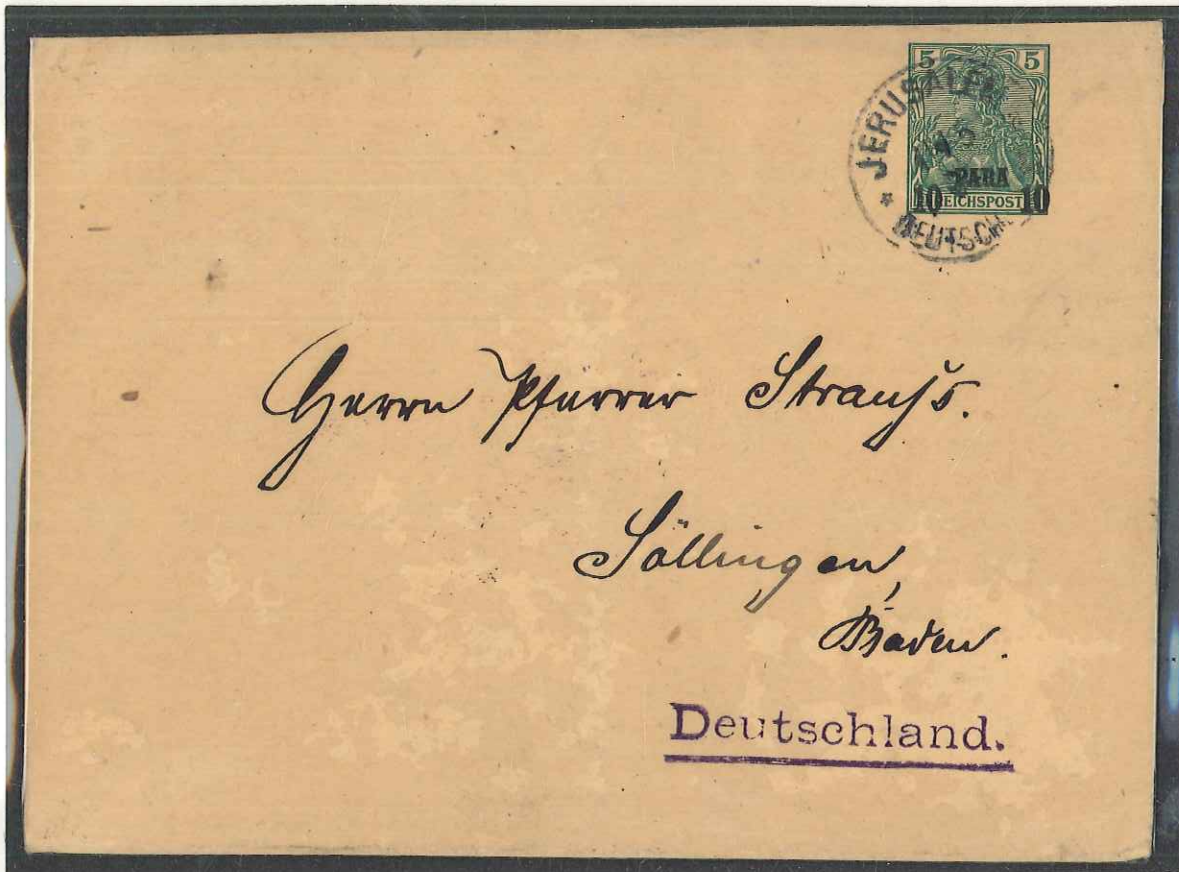 5 5
JERUSALEM
PARA
10 REICHSPOST 10
DEUTSCHE
Herrn Pfarrer Strauß.
Söllingen,
Baden.
Deutschland.